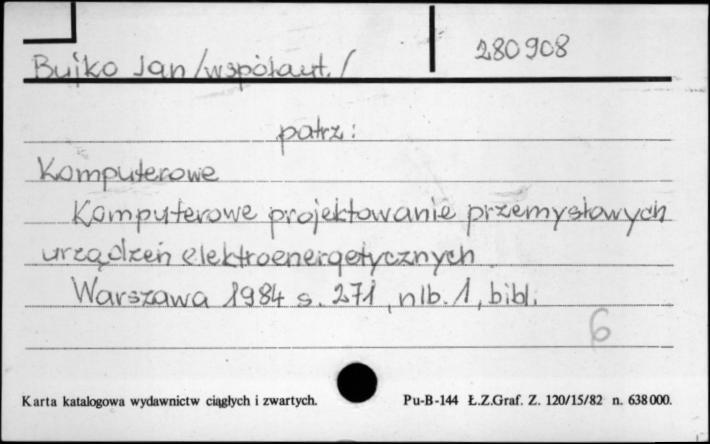 280908
Bujko Jan /współaut./
patrz:
Komputerowe
Komputerowe projektowanie przemysłowych
urządzeń elektroenergetycznych
Warszawa 1984 s. 271, nlb. 1, bibl.
6
Karta katalogowa wydawnictw ciągłych i zwartych. Pu-B-144 Ł.Z.Graf. Z. 120/15/82 n. 638000.